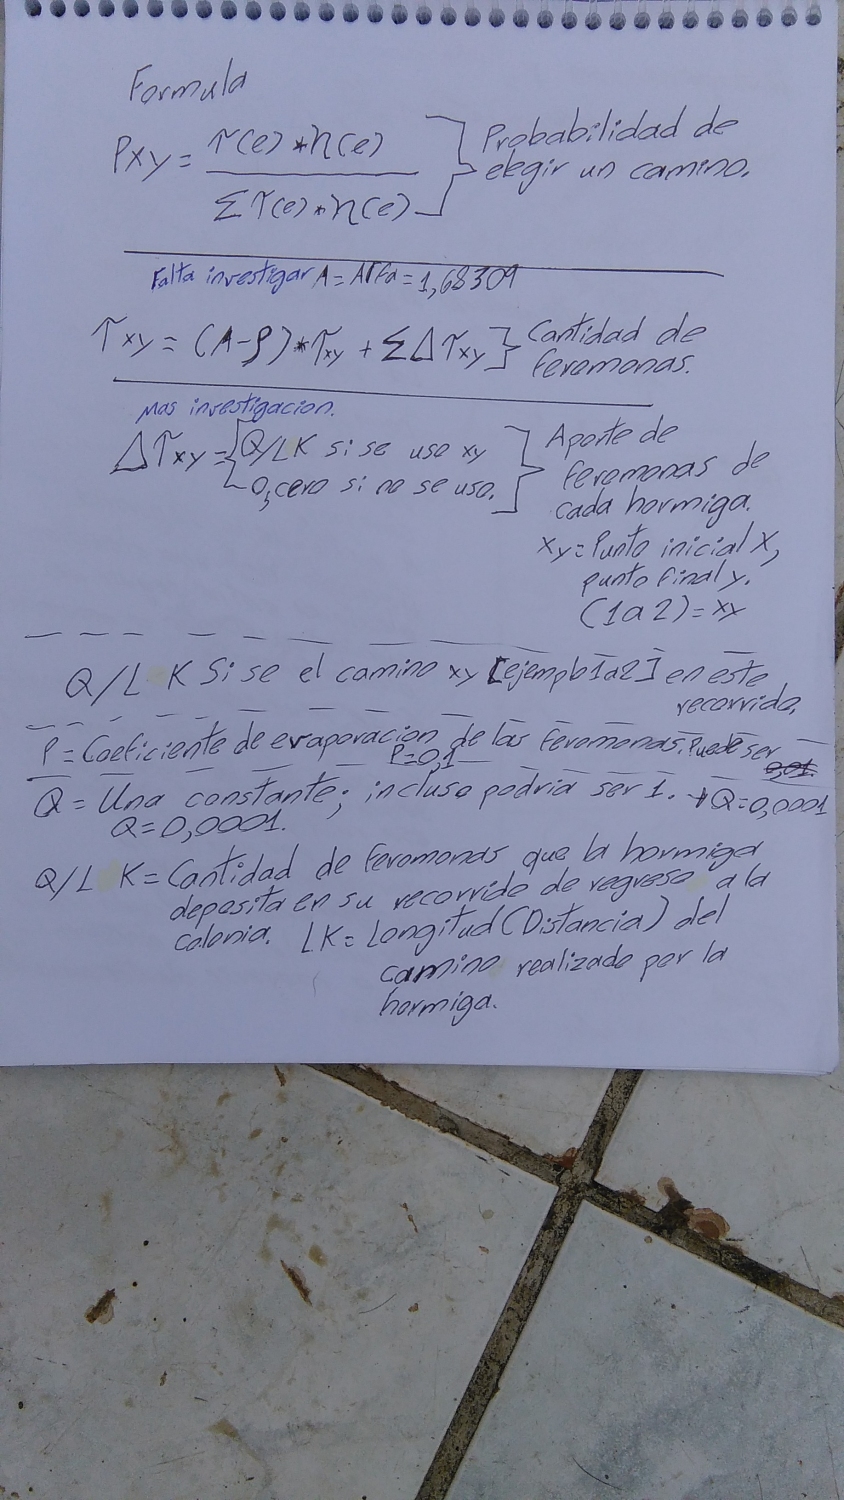 Formula
Pxy = τ(e) * η(e) / Σ τ(e) * η(e) } Probabilidad de elegir un camino.
Falta investigar A = Alfa = 1,68309
τxy = (A-ρ) * τxy + ΣΔτxy } Cantidad de feromonas.
Mas investigacion.
Δτxy = { Q/LK si se uso xy
0, cero si no se uso. } Aporte de feromonas de cada hormiga.
xy = Punto inicial X,
punto final y.
(1 a 2) = xy
Q/L K Si se el camino xy [ejemplo 1a2] en este
recorrido,
ρ = Coeficiente de evaporacion de las feromonas. Puede ser 0,01.
ρ=0,1
Q = Una constante; incluso podria ser 1. → Q=0,0001
Q = 0,0001.
Q/L K = Cantidad de feromonas que la hormiga
deposita en su recorrido de regreso a la
colonia. LK = Longitud (Distancia) del
camino realizado por la
hormiga.